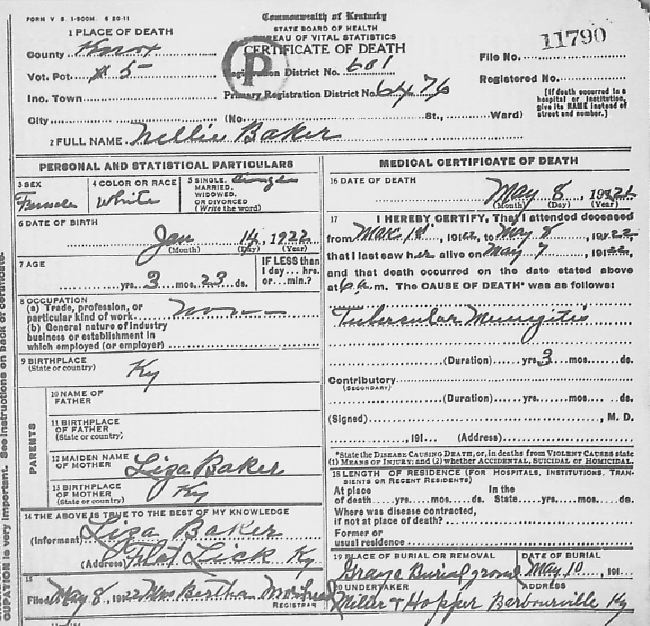 FORM V S. 1-500M. 6 20-11
Commonwealth of Kentucky
STATE BOARD OF HEALTH
BUREAU OF VITAL STATISTICS
CERTIFICATE OF DEATH
1 PLACE OF DEATH
County Knox
Vot. Pct. # 5
Inc. Town
City (No. St., Ward)
P
Registration District No. 601
Primary Registration District No. 6476
File No. 11790
Registered No.
[If death occurred in a
hospital or institution,
give its NAME instead of
street and number.]
2 FULL NAME Nellie Baker
PERSONAL AND STATISTICAL PARTICULARS
3 SEX
Female
4 COLOR OR RACE
White
5 SINGLE, Single
MARRIED,
WIDOWED,
OR DIVORCED
(Write the word)
6 DATE OF BIRTH
Jan 14, 1922
(Month) (Day) (Year)
7 AGE
yrs. 3 mos. 23 ds.
IF LESS than
1 day... hrs.
or...min.?
8 OCCUPATION
(a) Trade, profession, or
particular kind of work
(b) General nature of industry
business or establishment in
which employed (or employer)
9 BIRTHPLACE
(State or country)
Ky
PARENTS
10 NAME OF
FATHER
11 BIRTHPLACE
OF FATHER
(State or country)
12 MAIDEN NAME
OF MOTHER Liza Baker
13 BIRTHPLACE
OF MOTHER Ky
(State or country)
14 THE ABOVE IS TRUE TO THE BEST OF MY KNOWLEDGE
(Informant) Liza Baker
(Address) Flat Lick Ky
15
Filed May 8, 1922 Mrs Bertha
REGISTRAR
MEDICAL CERTIFICATE OF DEATH
16 DATE OF DEATH
May 8, 1922
(Month) (Day) (Year)
17 I HEREBY CERTIFY, That I attended deceased
from Mar. 1st, 1922, to May 8, 1922,
that I last saw her alive on May 7, 1922,
and that death occurred on the date stated above
at 6 a.m. The CAUSE OF DEATH* was as follows:
Tubercular Meningitis
(Duration) yrs. 3 mos. ds.
Contributory
(SECONDARY)
(Duration) yrs. mos. ds.
(Signed) , M. D.
, 191 (Address)
*State the DISEASE CAUSING DEATH, or, in deaths from VIOLENT CAUSES state
(1) MEANS OF INJURY; and (2) whether ACCIDENTAL, SUICIDAL or HOMICIDAL.
18 LENGTH OF RESIDENCE (FOR HOSPITALS, INSTITUTIONS, TRANSIENTS OR RECENT RESIDENTS)
At place In the
of death....yrs....mos....ds. State....yrs....mos....ds.
Where was disease contracted,
if not at place of death?
Former or
usual residence
19 PLACE OF BURIAL OR REMOVAL
Burial ground
DATE OF BURIAL
May 10, 191
20 UNDERTAKER
Miller & Hopper
ADDRESS
Barbourville Ky
CUPATION is very important. See instructions on back of certificate.